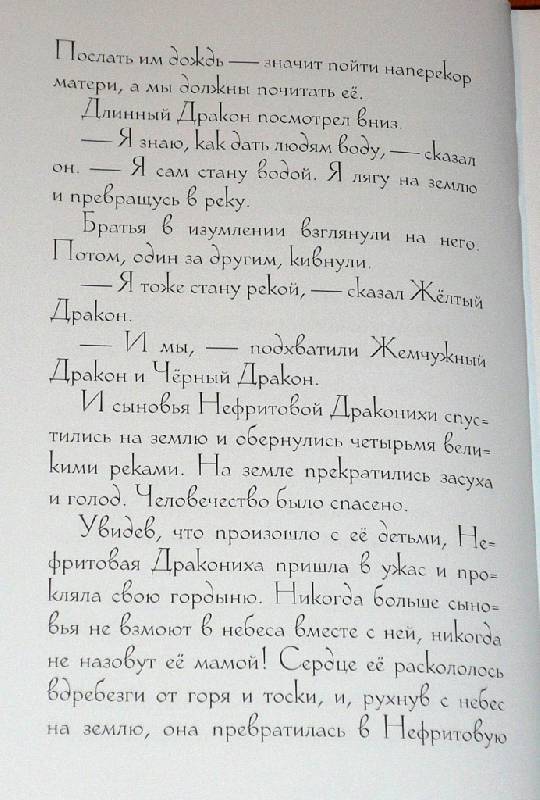 Послать им дождь — значит пойти наперекор
матери, а мы должны почитать её.
Длинный Дракон посмотрел вниз.
— Я знаю, как дать людям воду, — сказал
он. — Я сам стану водой. Я лягу на землю
и превращусь в реку.
Братья в изумлении взглянули на него.
Потом, один за другим, кивнули.
— Я тоже стану рекой, — сказал Жёлтый
Дракон.
— И мы, — подхватили Жемчужный
Дракон и Чёрный Дракон.
И сыновья Нефритовой Драконихи спус-
тились на землю и обернулись четырьмя вели-
кими реками. На земле прекратились засуха
и голод. Человечество было спасено.
Увидев, что произошло с её детьми, Не-
фритовая Дракониха пришла в ужас и про-
кляла свою гордыню. Никогда больше сыно-
вья не взмоют в небеса вместе с ней, никогда
не назовут её мамой! Сердце её раскололось
вдребезги от горя и тоски, и, рухнув с небес
на землю, она превратилась в Нефритовую